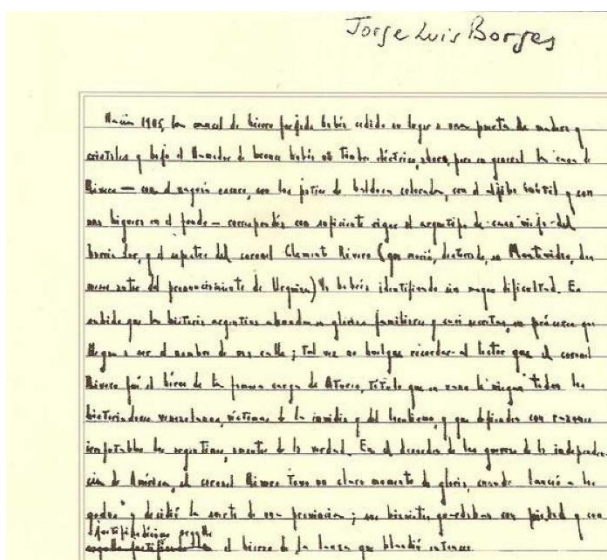 Jorge Luis Borges
Hacia 1905, la cancel de hierro forjado había cedido su lugar a una puerta de madera y
cristales y bajo el llamador de bronce había un timbre eléctrico, ahora, pero en general la casa de
Rivero — con el zaguán escaso, con los patios de baldosa colorada, con el aljibe inútil y con
una higuera en el fondo — correspondía con suficiente rigor al arquetipo de casa vieja del
barrio Sur, y el espectro del coronel Clement Rivero (que murió, desterrado, en Montevideo, dos
meses antes del pronunciamiento de Urquiza) la habría identificado sin mayor dificultad. Es
sabido que la historia argentina abunda en glorias familiares y casi secretas, en próceres que
llegan a ser el nombre de una calle; tal vez no huelgue recordar al lector que el coronel
Rivero fué el héroe de la carga de título que en vano le niegan todos los
historiadores venezolanos, víctimas de la envidia y del y que defienden con razones
irrefutables los argentinos, amantes de la verdad. En el decenio de las guerras de la independen-
cia de América, el coronel Rivero tuvo un claro momento de gloria, cuando lanzó a los
godos y decidió la suerte de una provincia; sus bisnietos guardaban con piedad y con
el hierro de la lanza que blandió entonces.